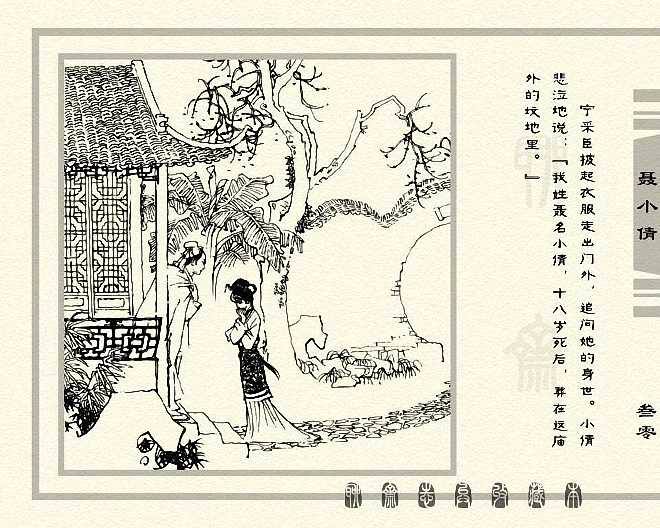 宁采臣披起衣服走出门外，追问她的身世。小倩
悲泣地说：“我姓聂名小倩，十八岁死后，葬在这庙
外的坟地里。”
聂小倩
叁零